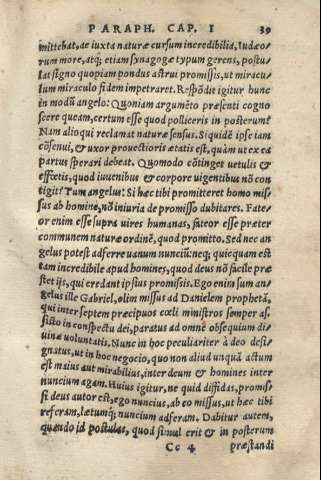 PARAPH. CAP. I 39
mittebat, ac iuxta naturæ cursum incredibilia, Iudæo-
rum more, atq; etiam synagogæ typum gerens, postu
lat signo quopiam pondus astrui promissis, ut miracu
lum miraculo fidem impetraret. Respōdit igitur hunc
in modū angelo: Quoniam argumēto præsenti cogno
scere queam, certum esse quod polliceris in posterum?
Nam alioqui reclamat naturæ sensus. Siquidē ipse iam
cōsenui, & uxor prouectioris ætatis est, quàm ut ex ea
partus sperari debeat. Quomodo cōtinget uetulis &
effœtis, quod iuuenibus & corpore uigentibus nō con
tigit? Tum angelus: Si hæc tibi promitteret homo mis
sus ab homine, nō iniuria de promisso dubitares. Fate-
or enim esse supra uires humanas, fateor esse præter
communem naturæ ordinē, quod promitto. Sed nec an
gelus potest adferre uanum nunciū: neq; quicquam est
tam incredibile apud homines, quod deus nō facile præ
stet ijs, qui credant ipsius promissis. Ego enim sum an-
gelus ille Gabriel, olim missus ad Danielem prophetā,
qui inter septem præcipuos cœli ministros semper as-
sisto in conspectu dei, paratus ad omnē obsequium di-
uinæ uoluntatis. Nunc in hoc peculiariter à deo desi-
gnatus, ut in hoc negocio, quo non aliud unquā actum
est maius aut mirabilius, inter deum & homines inter
nuncium agam. Huius igitur, ne quid diffidas, promis-
si deus autor est, ego nuncius, ab eo missus, ut hæc tibi
referam, lætumq; nuncium adferam. Dabitur autem,
quando id postulas, quod simul erit & in posterum
Cc 4 præstandi